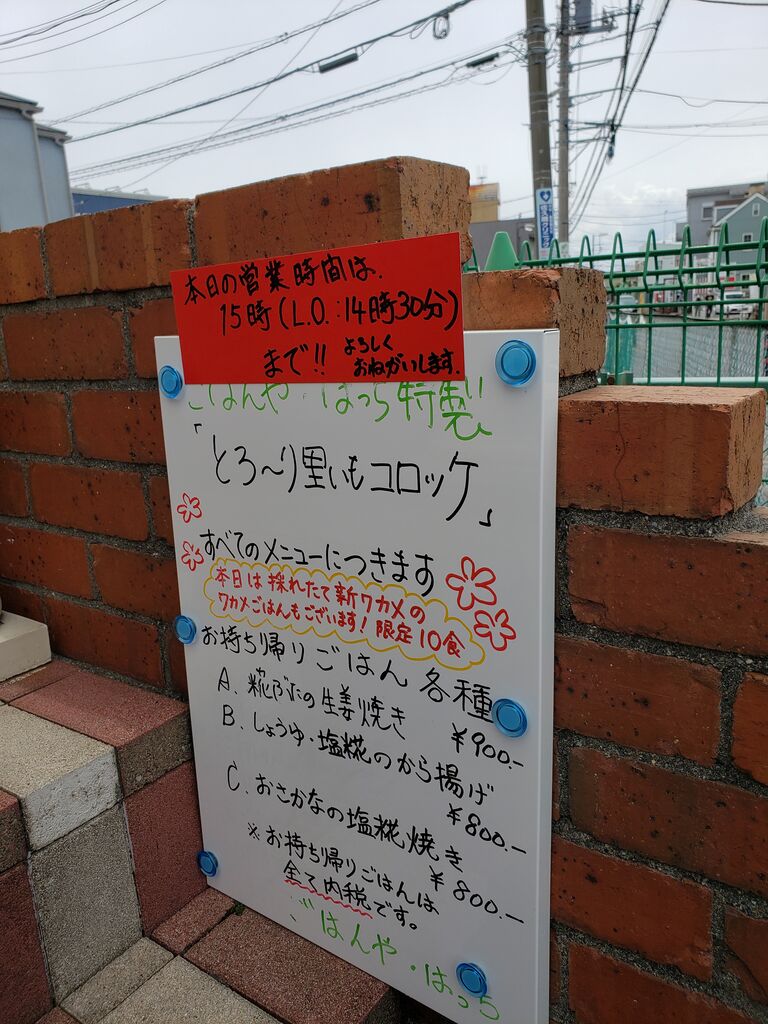 本日の営業時間は、
15時(L.O.:14時30分)
まで!! よろしく
おねがいします。
ごはんや・はっち特製
「とろ〜り里いもコロッケ」
すべてのメニューにつきます
本日は採れたて新ワカメの
ワカメごはんもございます!限定10食
お持ち帰りごはん各種
A. 糀ぶたの生姜焼き
¥900.-
B. しょうゆ・塩糀のから揚げ
¥800.-
C. おさかなの塩糀焼き
¥800.-
※お持ち帰りごはんは
全て内税です。
ごはんや・はっち